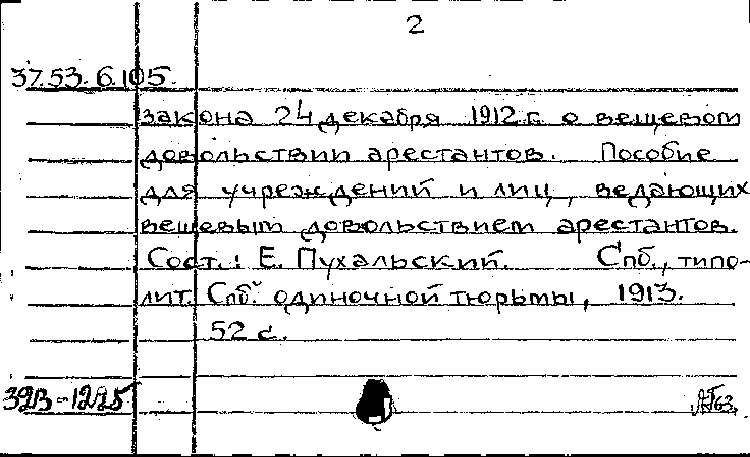 2
37.53.6.105.
закона 24 декабря 1912 г. о вещевом
довольствии арестантов. Пособие
для учреждений и лиц, ведающих
вещевым довольствием арестантов.
Сост.: Е. Пухальский. Спб., типо-
лит. Спб. одиночной тюрьмы, 1913.
52 с.